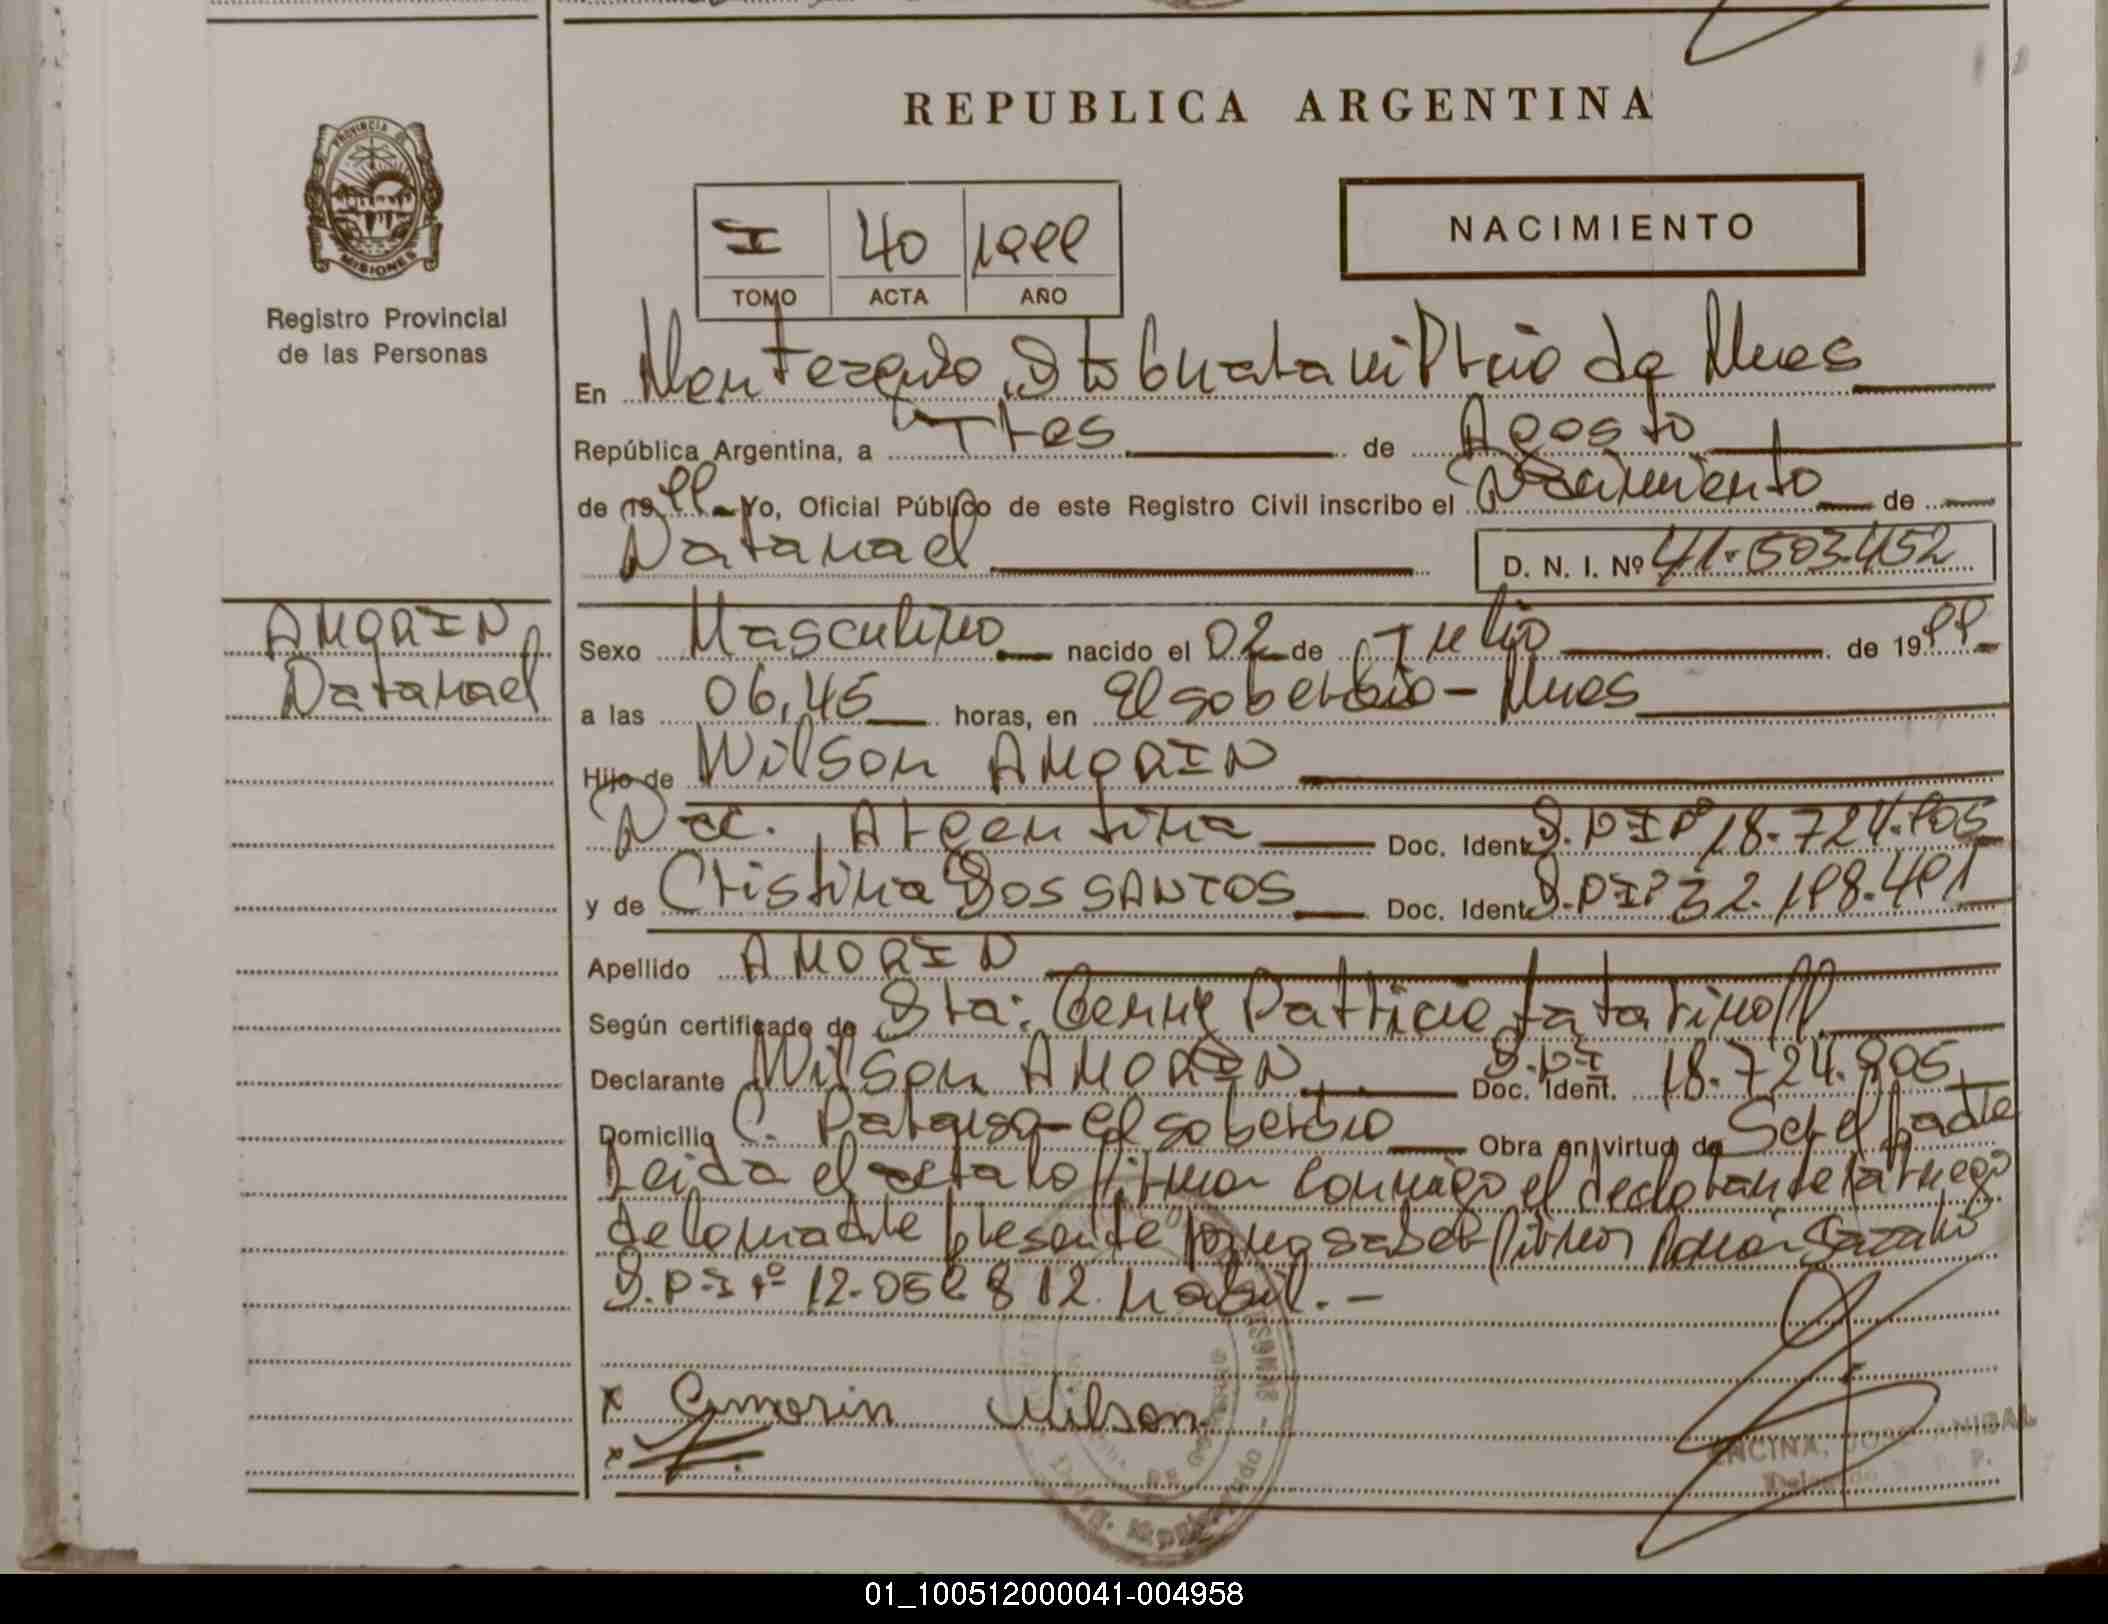 REPUBLICA ARGENTINA
PROVINCIA DE
MISIONES
Registro Provincial
de las Personas
NACIMIENTO
I 40
TOMO ACTA AÑO
En Dpto de Mnes
República Argentina, a Tres de Agosto
de 19 Yo, Oficial Público de este Registro Civil inscribo el Nacimiento de
Natanael D. N. I. Nº 41.503.452
AMORIN
Natanael
Sexo Masculino nacido el 02 de Julio de 19
a las 06,45 horas, en El soberbio - Mnes
Hijo de Wilson AMORIN
Nac. Argentina Doc. Ident. D.N.I Nº 18.724.805
y de Cristina DOS SANTOS Doc. Ident. D.N.I Nº
Apellido AMORIN
Según certificado de Sta:
Declarante Wilson AMORIN Doc. Ident. D.N.I 18.724.805
Domicilio C. Paraiso - El soberbio Obra en virtud de Ser el padre
Leida el acta la firman conmigo el declarante a ruego
de la madre presente por no saber firmar
D.N.I Nº habil. -
x Amorin Wilson
x
ENCINA, JOSE ANIBAL
01_100512000041-004958